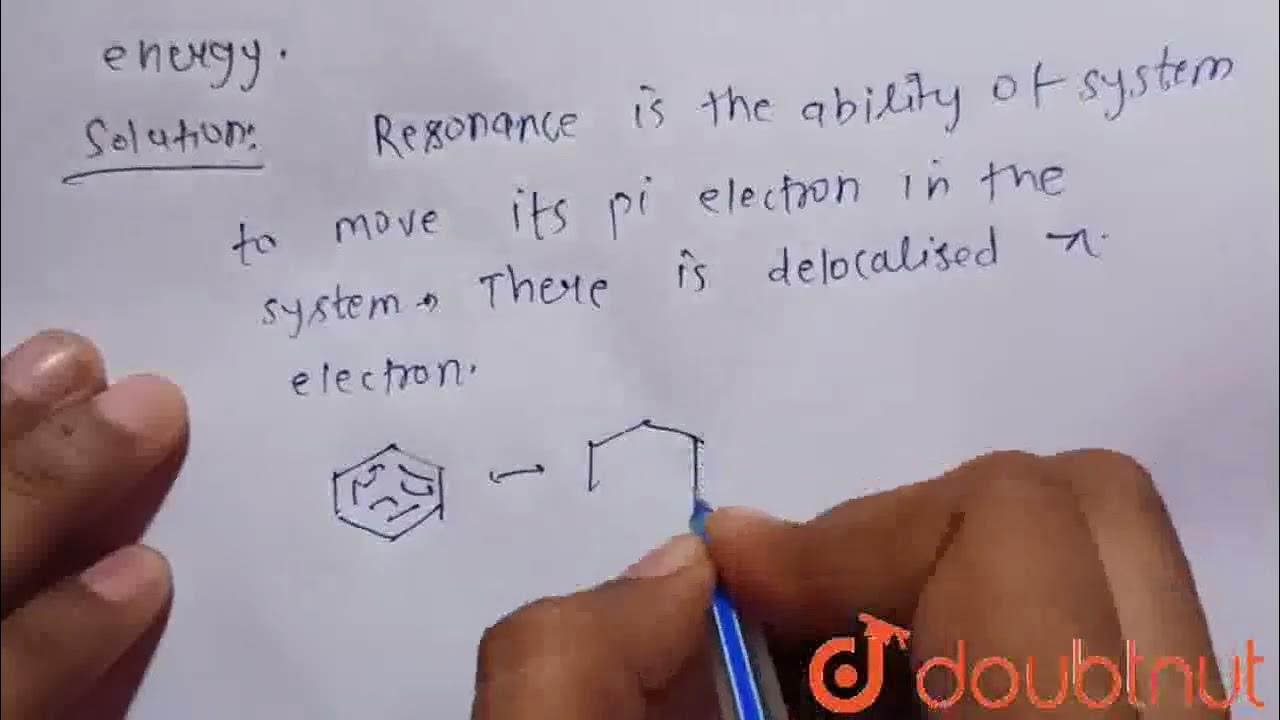 energy.
Solution: Resonance is the ability of system
to move its pi electron in the
system. There is delocalised π
electron.
doubtnut